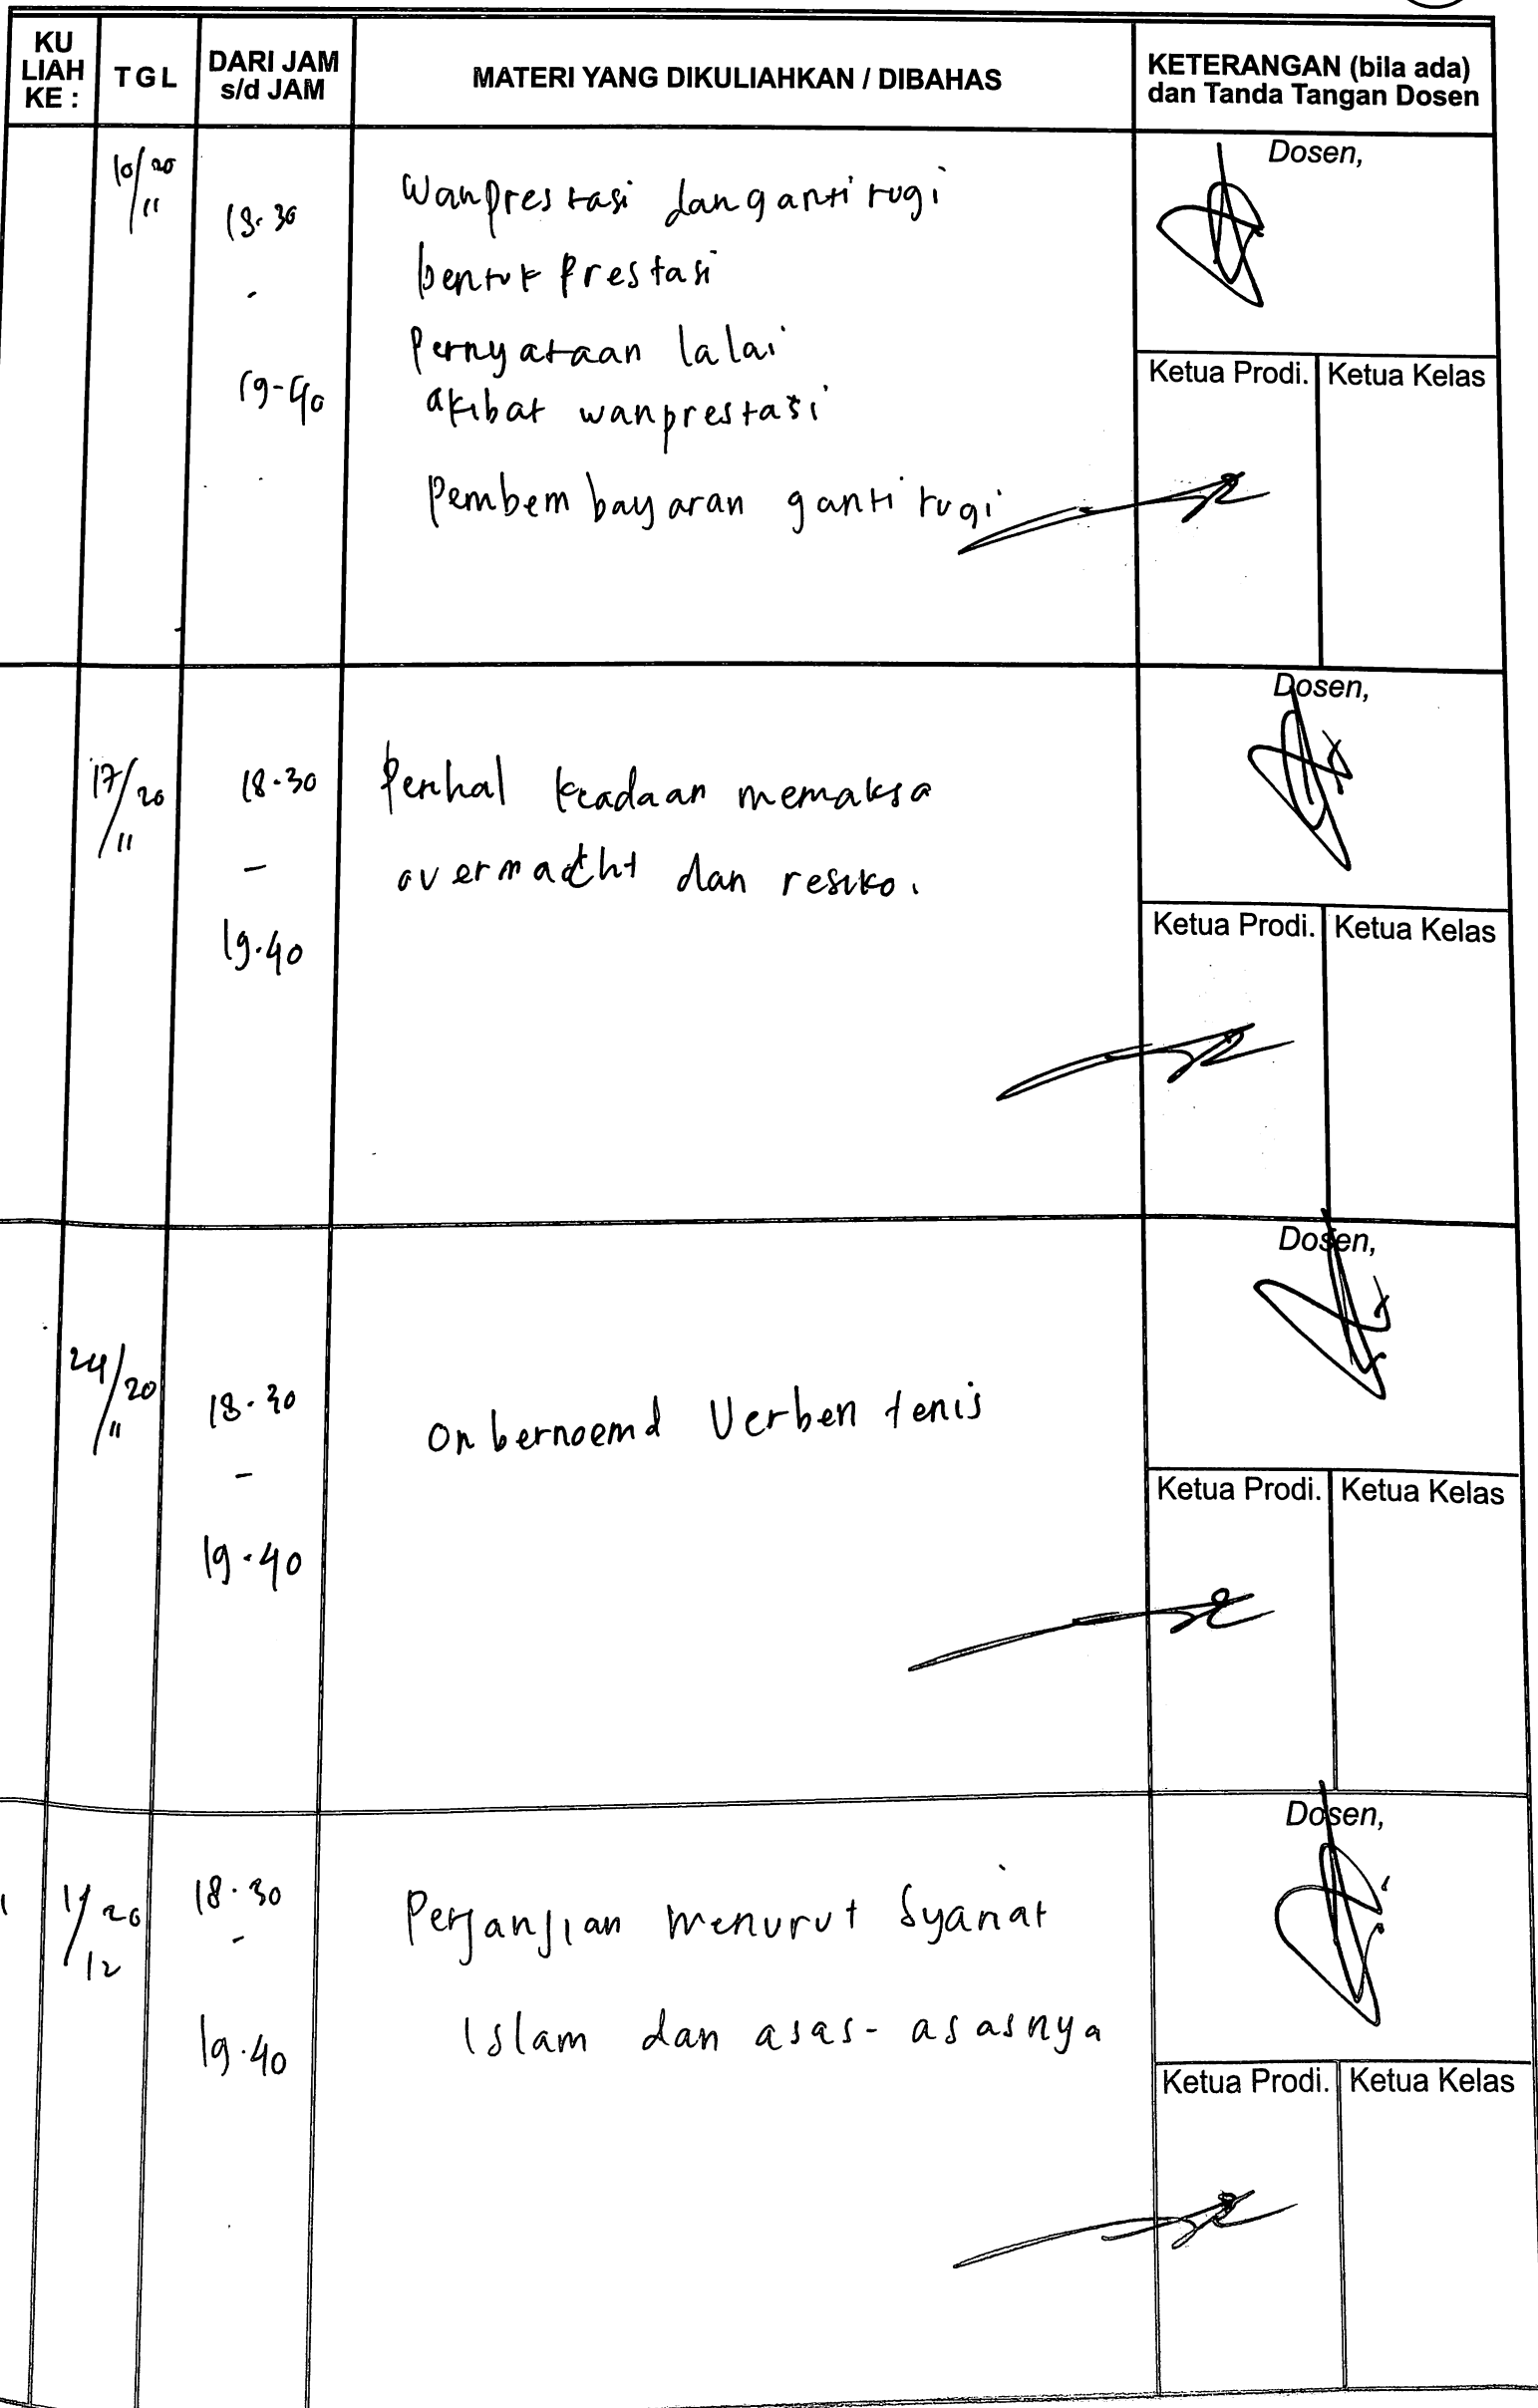 KU
LIAH
KE :
TGL
DARI JAM
s/d JAM
MATERI YANG DIKULIAHKAN / DIBAHAS
KETERANGAN (bila ada)
dan Tanda Tangan Dosen
10/20
11
18.30
-
19-40
Wanprestasi dan ganti rugi
bentuk Prestasi
Pernyataan lalai
akibat wanprestasi
Pembembayaran ganti rugi
Dosen,
Ketua Prodi.
Ketua Kelas
17/20
11
18.30
-
19.40
Perihal keadaan memaksa
overmacht dan resiko.
Dosen,
Ketua Prodi.
Ketua Kelas
24/20
11
18.30
-
19.40
Onbernoemd Verbentenis
Dosen,
Ketua Prodi.
Ketua Kelas
1/20
12
18.30
-
19.40
Perjanjian menurut Syariat
Islam dan asas-asasnya
Dosen,
Ketua Prodi.
Ketua Kelas